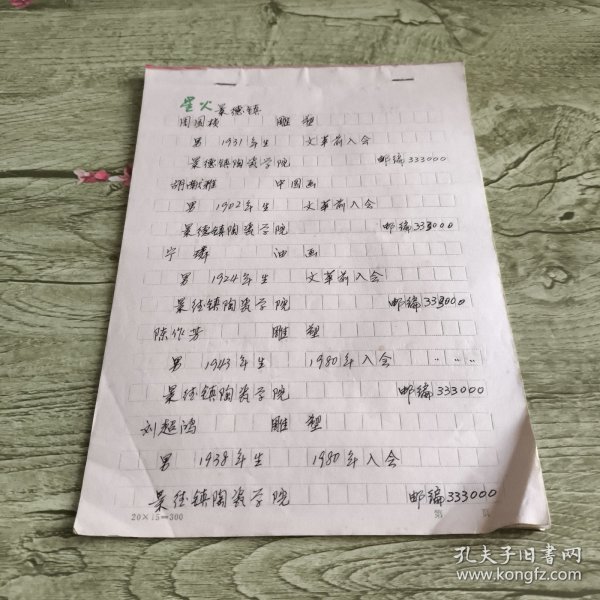 星火 景德镇
周国桢 雕塑
男 1931年生 文革前入会
景德镇陶瓷学院 邮编333000
胡献雅 中国画
男 1902年生 文革前入会
景德镇陶瓷学院 邮编333000
宁璘 油画
男 1924年生 文革前入会
景德镇陶瓷学院 邮编333000
陈作芳 雕塑
男 1943年生 1980年入会 〃 〃 〃
景德镇陶瓷学院 邮编333000
刘超鸿 雕塑
男 1938年生 1980年入会
景德镇陶瓷学院 邮编333000
20×15=300 第 页
孔夫子旧书网
www.kongfz.com